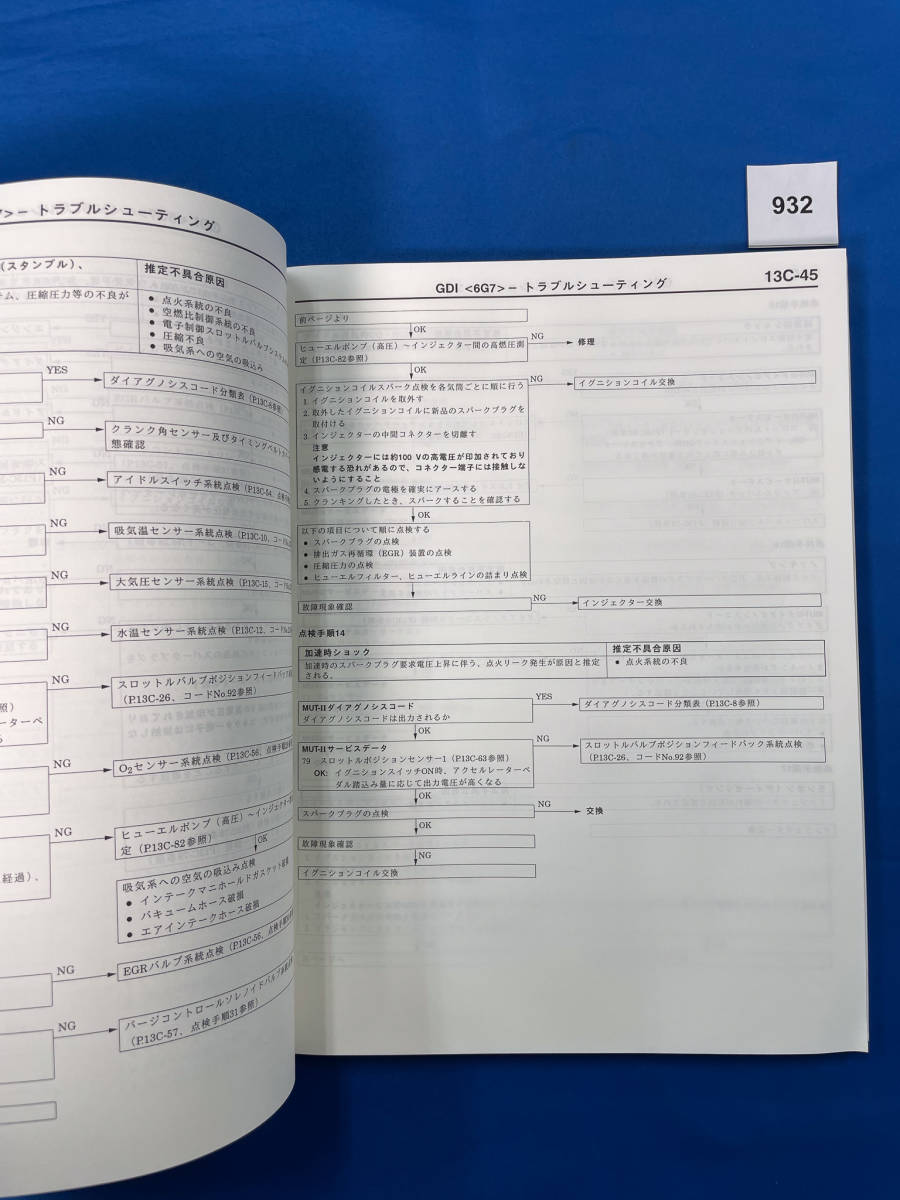 932
7>－トラブルシューティング
(スタンブル)、
推定不具合原因
テム、圧縮圧力等の不良が
● 点火系統の不良
● 空燃比制御系統の不良
● 電子制御スロットルバルブシステム
● 圧縮不良
● 吸気系への空気の吸込み
YES
ダイアグノシスコード分類表（P.13C-8参照
NG
クランク角センサー及びタイミングベルト
態確認
NG
アイドルスイッチ系統点検（P.13C-54、
NG
吸気温センサー系統点検（P.13C-10、コード
NG
大気圧センサー系統点検（P.13C-15、コード
NG
水温センサー系統点検（P.13C-12、コード
NG
スロットルバルブポジションフィードバック系
（P.13C-26、コードNo.92参照）
照）
レーターペ
る
NG
O2センサー系統点検（P.13C-56、点検手順
NG
ヒューエルポンプ（高圧）～インジェクター
定（P.13C-82参照）
OK
経過）、
吸気系への空気の吸込み点検
● インテークマニホールドガスケット破損
● バキュームホース破損
● エアインテークホース破損
NG
EGRバルブ系統点検（P.13C-56、点検手順
NG
パージコントロールソレノイドバルブ系統点
（P.13C-57、点検手順31参照）
GDI <6G7>－トラブルシューティング
13C-45
前ページより
OK
ヒューエルポンプ（高圧）～インジェクター間の高燃圧測
定（P.13C-82参照）
NG
修理
OK
イグニションコイルスパーク点検を各気筒ごとに順に行う
1. イグニションコイルを取外す
2. 取外したイグニションコイルに新品のスパークプラグを
取付ける
3. インジェクターの中間コネクターを切離す
注意
インジェクターには約100 Vの高電圧が印加されており
感電する恐れがあるので、コネクター端子には接触しな
いようにすること
4. スパークプラグの電極を確実にアースする
5. クランキングしたとき、スパークすることを確認する
NG
イグニションコイル交換
OK
以下の項目について順に点検する
● スパークプラグの点検
● 排出ガス再循環（EGR）装置の点検
● 圧縮圧力の点検
● ヒューエルフィルター、ヒューエルラインの詰まり点検
故障現象確認
NG
インジェクター交換
点検手順14
加速時ショック
推定不具合原因
加速時のスパークプラグ要求電圧上昇に伴う、点火リーク発生が原因と推定
される。
● 点火系統の不良
MUT-IIダイアグノシスコード
ダイアグノシスコードは出力されるか
YES
ダイアグノシスコード分類表（P.13C-8参照）
OK
MUT-IIサービスデータ
79 スロットルポジションセンサー1（P.13C-63参照）
OK: イグニションスイッチON時、アクセルレーターペ
ダル踏込み量に応じて出力電圧が高くなる
NG
スロットルバルブポジションフィードバック系統点検
（P.13C-26、コードNo.92参照）
OK
スパークプラグの点検
NG
交換
OK
故障現象確認
NG
イグニションコイル交換